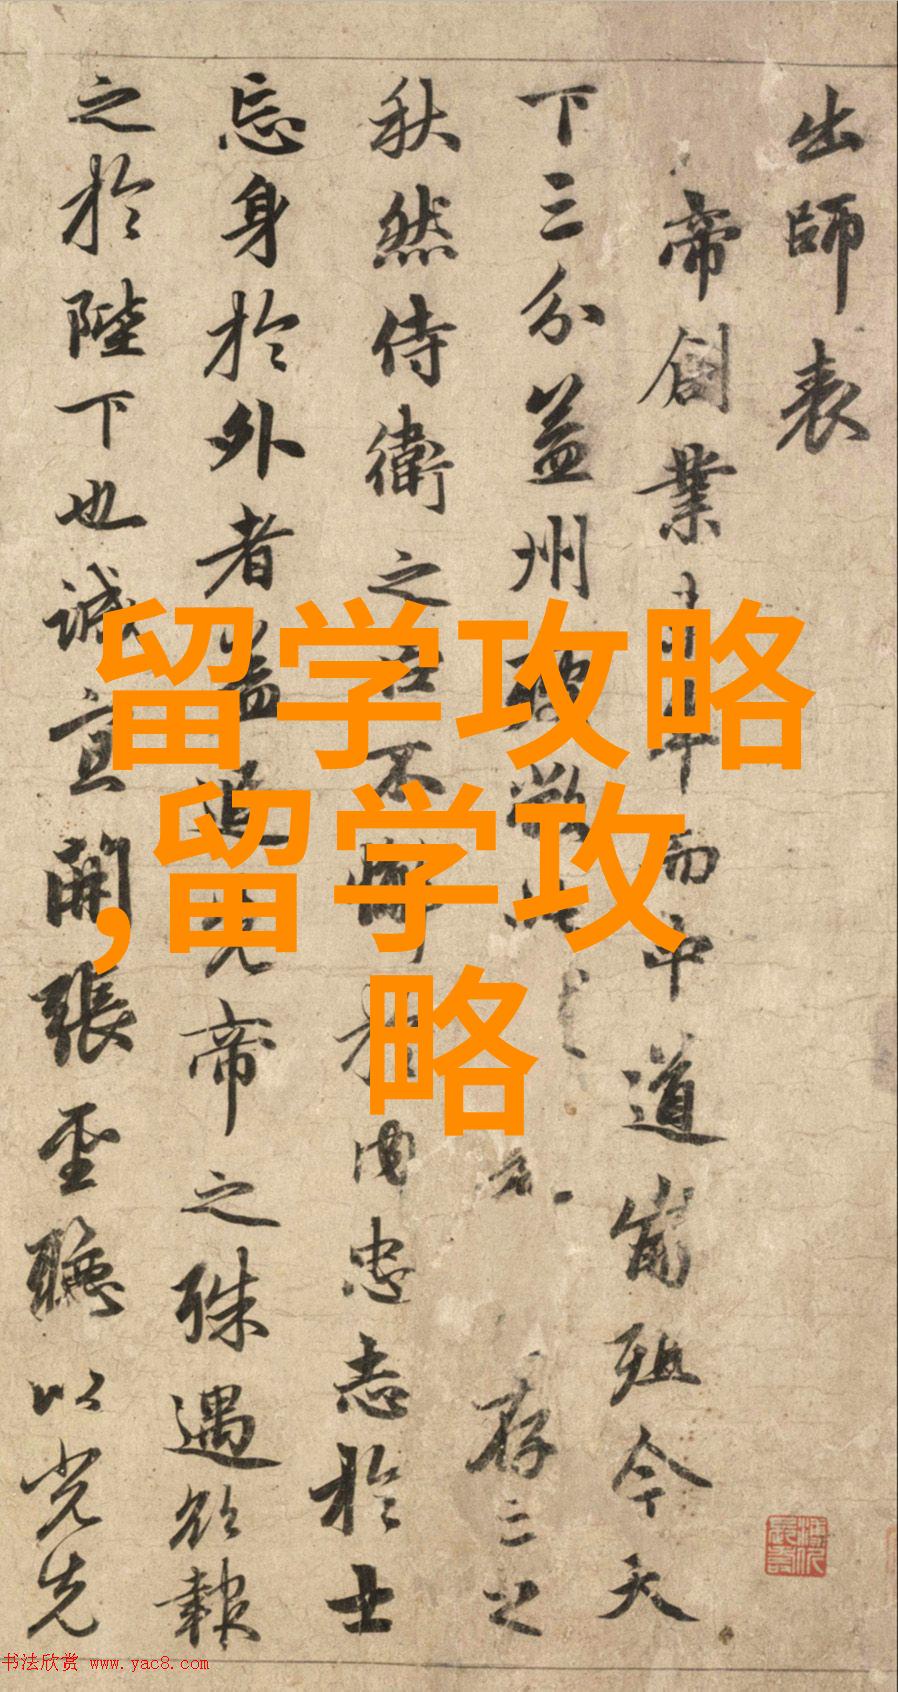 出師表
帝創業未半而中道崩殂今天
下三分益州疲弊此存亡之
秋然侍衛之臣不懈於内忠志於士
忘身於外者蓋追先帝之殊遇欲報
之於陛下也誠宜開張聖聽以光先
留学攻略
,留学攻
略
书法欣赏 www.yac8.com